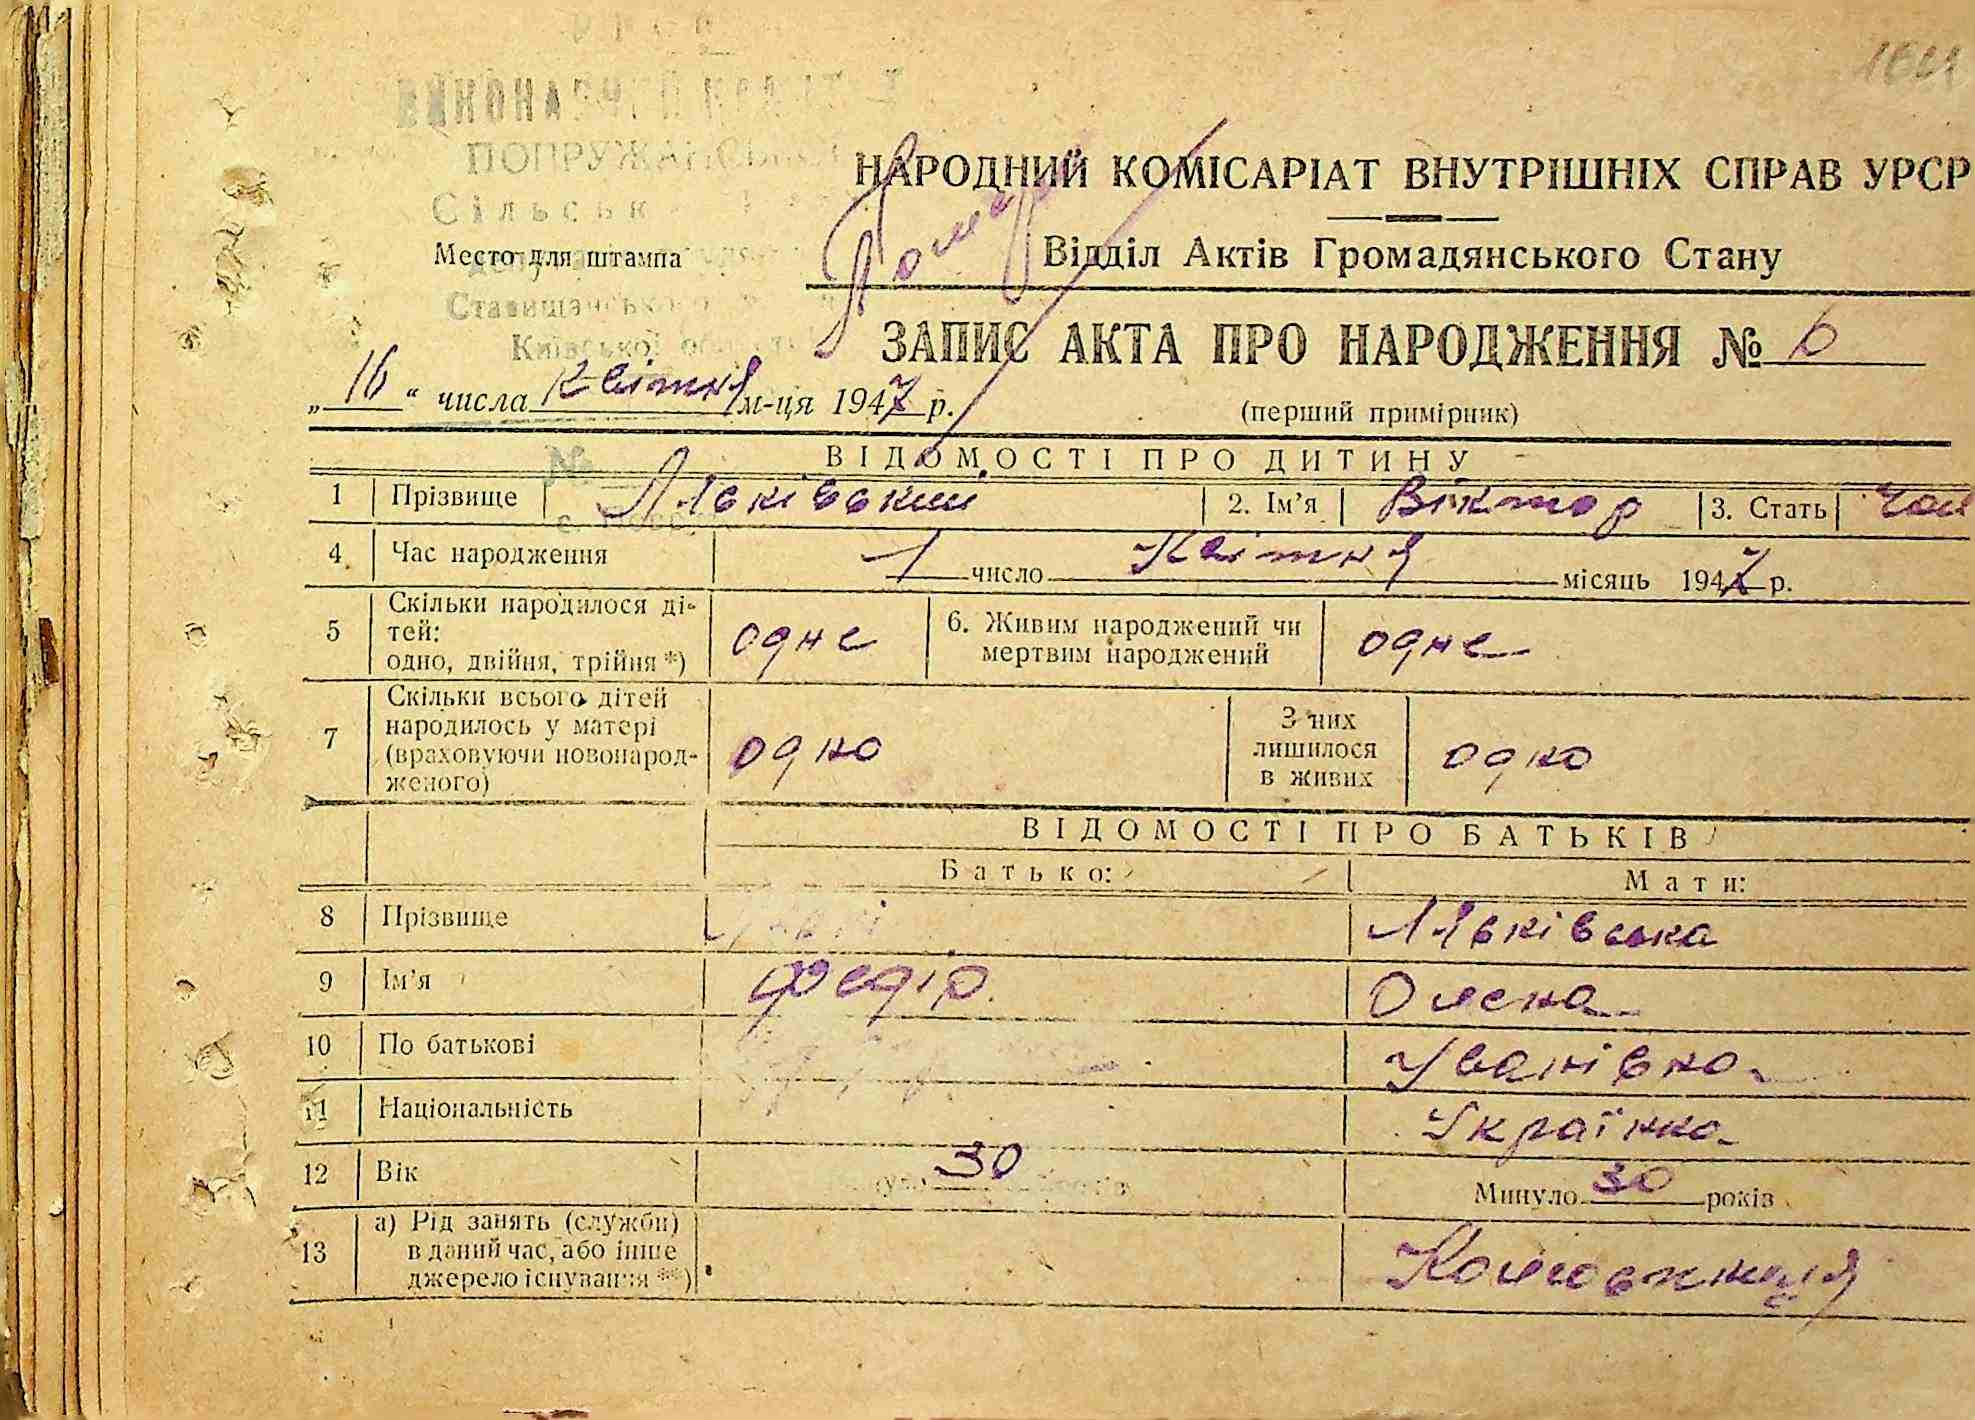 УРСР
ВИКОНАВЧИЙ КОМІТЕТ
ПОПРУЖАНСЬКОЇ
Сільської
НАРОДНИЙ КОМІСАРІАТ ВНУТРІШНІХ СПРАВ УРСР
Место для штампа
Відділ Актів Громадянського Стану
Ставищанського
Київської області
Помер
ЗАПИС АКТА ПРО НАРОДЖЕННЯ № 6
„16“ числа Квітня м-ця 1947 р.
(перший примірник)
№
ВІДОМОСТІ ПРО ДИТИНУ
1 Прізвище Лявківський 2. Ім’я Віктор 3. Стать чол
4 Час народження 1 число Квітня місяць 1947 р.
5 Скільки народилося ді-
тей:
одно, двійня, трійня *) одне 6. Живим народжений чи
мертвим народжений одне
7 Скільки всього дітей
народилось у матері
(враховуючи новонарод-
женого) одно З них
лишилося
в живих одно
ВІДОМОСТІ ПРО БАТЬКІВ
Батько: Мати:
8 Прізвище Лявківська
9 Ім’я Федір Олена
10 По батькові Іванівна
11 Національність Українка
12 Вік 30 Минуло 30 років
13 а) Рід занять (служби)
в даний час, або інше
джерело існування **) Колгоспниця